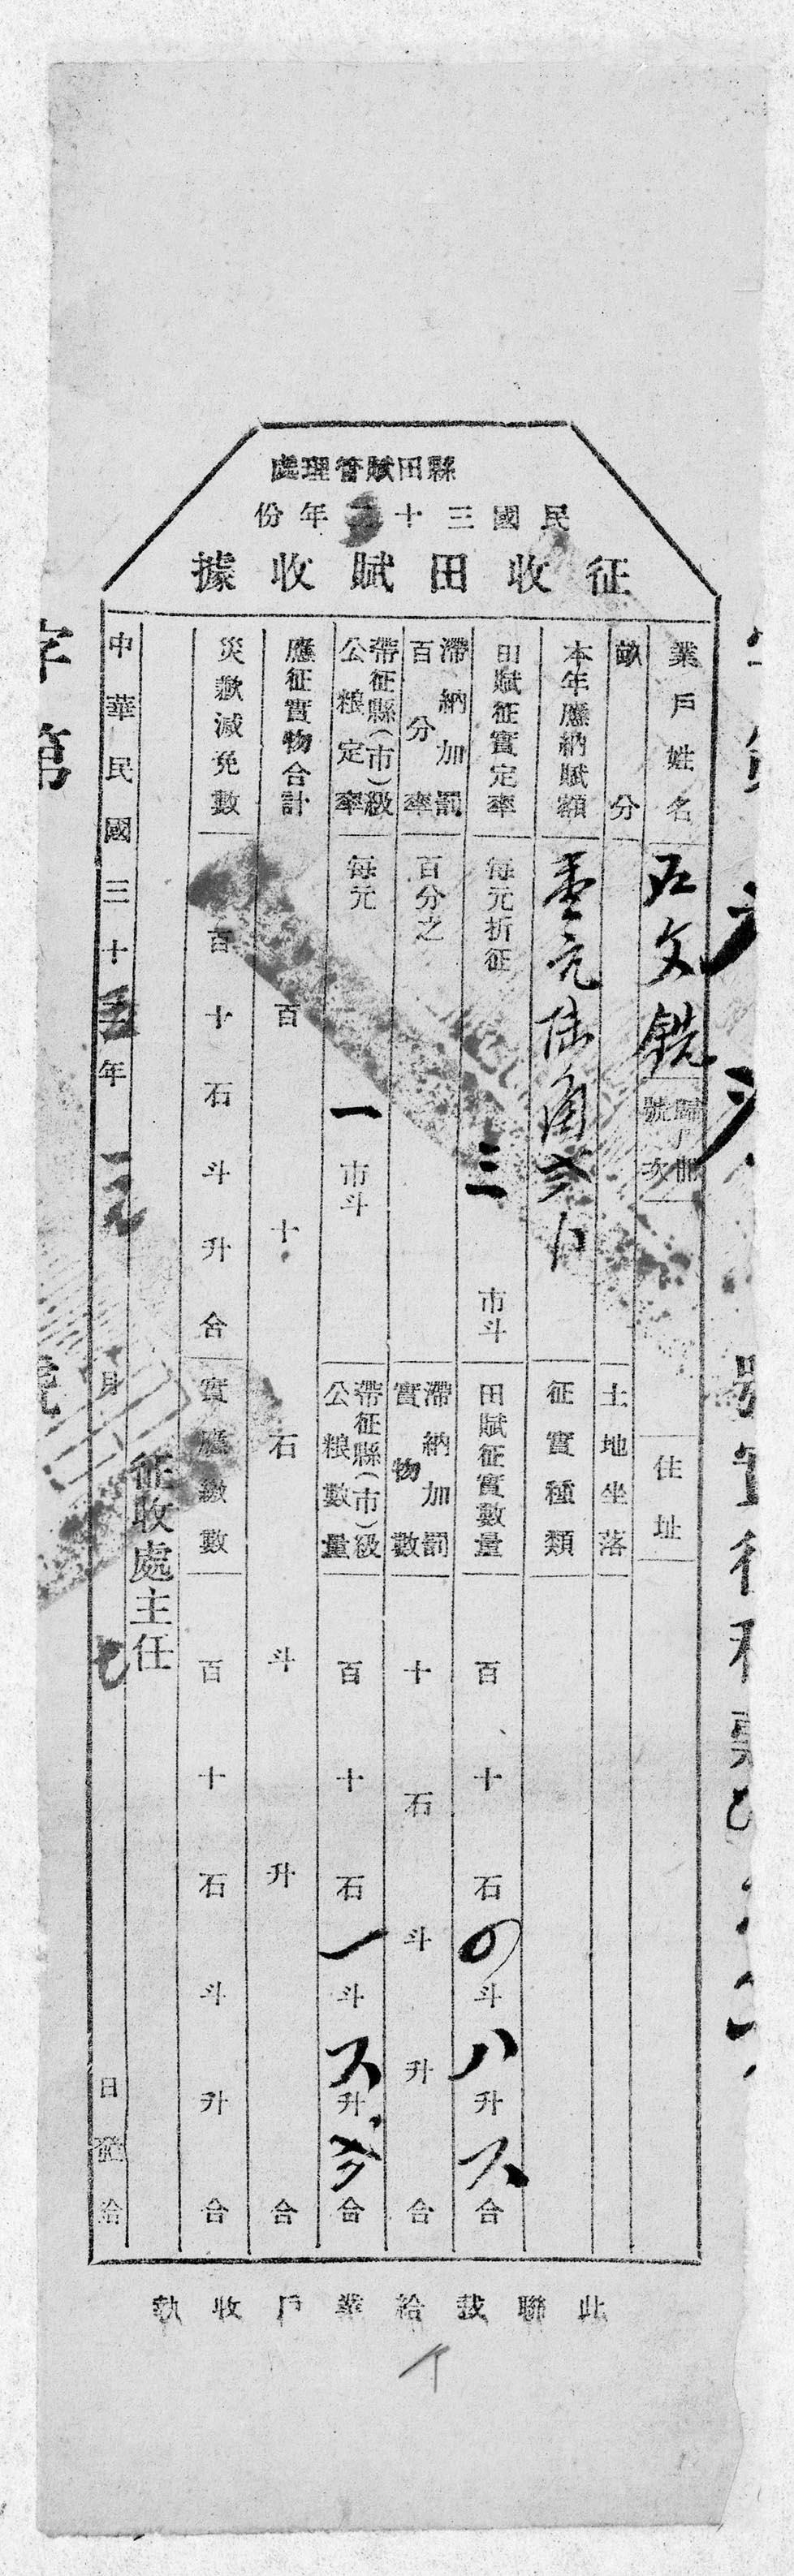 縣田賦管理處
民國三十年份
征收田賦收據
業戶姓名 文銑 歸戶冊號次 住址
畝分 土地坐落
本年應納賦額 壹元陆角弍 征實種類
田賦征實定率 每元折征 三 市斗 田賦征實數量 百十石 斗八升六合
滯納加罰百分率 百分之 滯納加罰實物數 十石斗升合
帶征縣(市)級公粮定率 每元 一 市斗 帶征縣(市)級公粮數量 百十石一斗六升弍合
應征實物合計 百十石斗升合
災歉減免數 百十石斗升合 實應繳數 百十石斗升合
征收處主任
中華民國三十五年 元 月 七 日 填給
此聯裁給業戶收執
字第